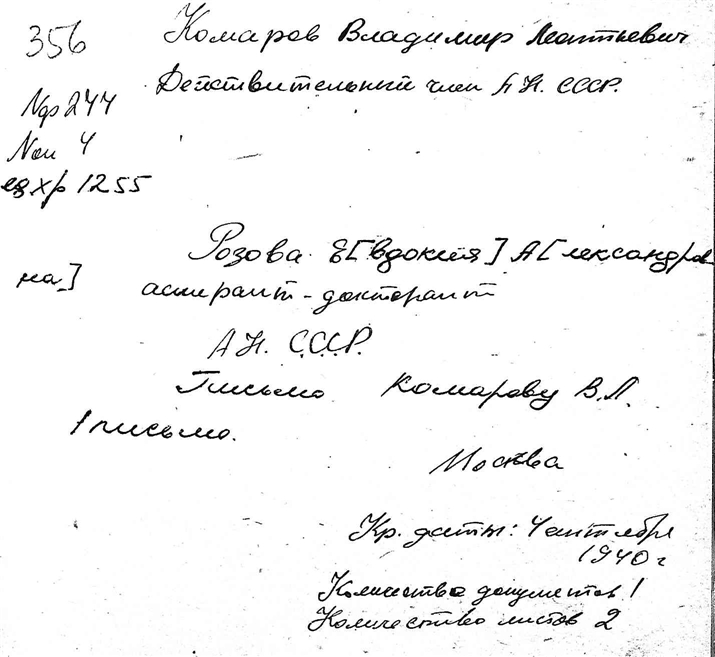 356
Комаров Владимир Леонтьевич
Действительный член АН. СССР.
№ф 244
№оп 4
ед хр 1255
Розова Е[вдокия] А[лександров
на]
аспирант-докторант
АН. СССР.
Письмо Комарову В.Л.
1 письмо.
Москва
Кр. даты: 4 октября
1940 г
Количество документов 1
Количество листов 2